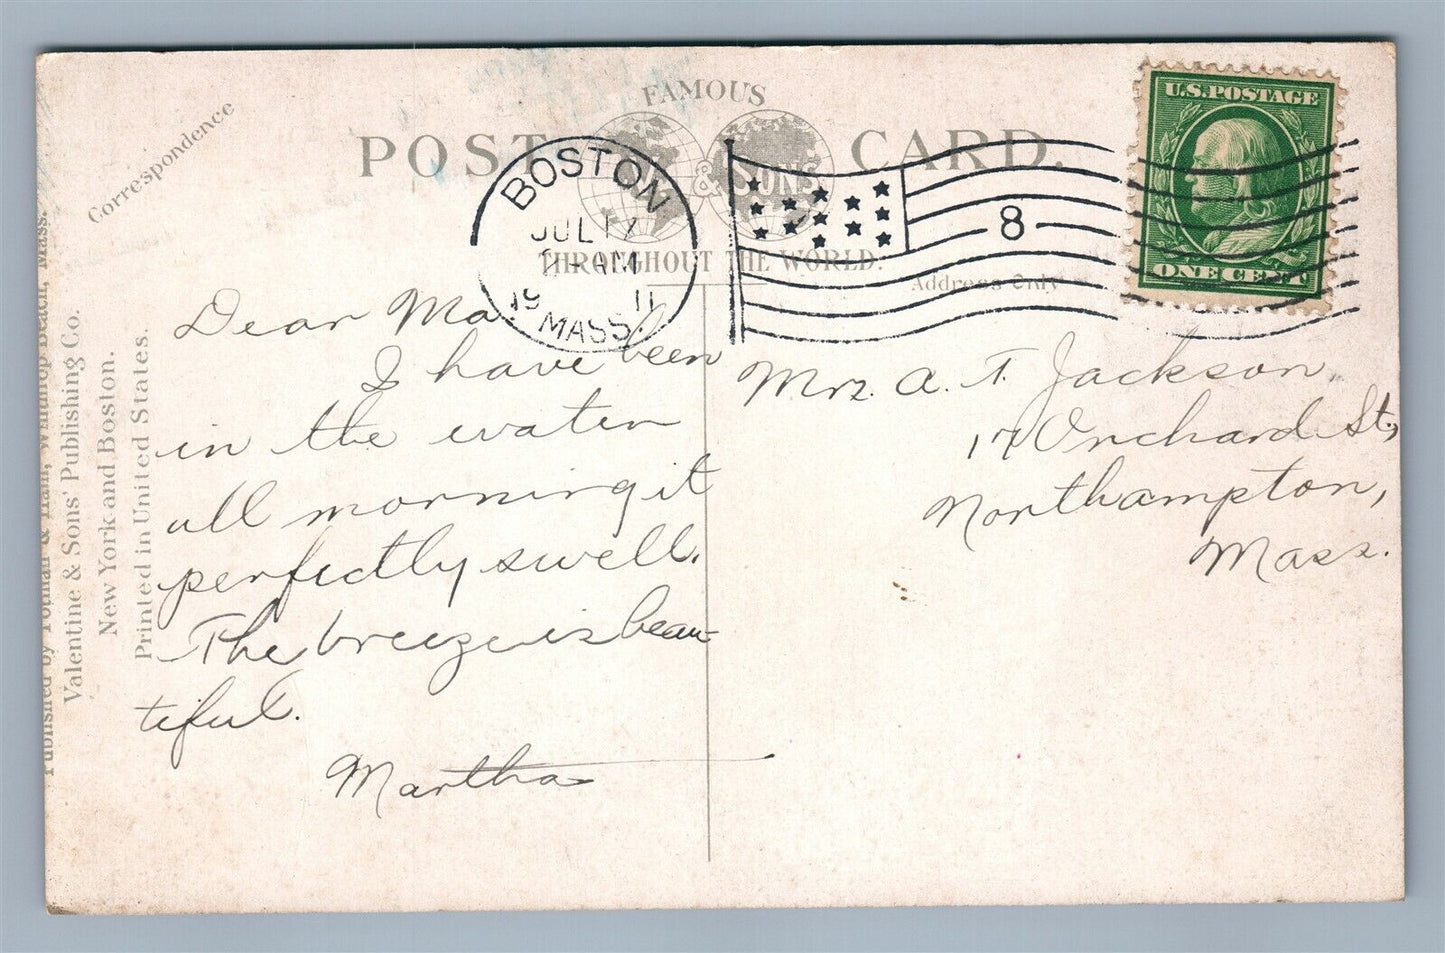 FAMOUS
POST CARD.
& SONS
THROUGHOUT THE WORLD.
Correspondence
Address Only
U.S.POSTAGE
ONE CENT
BOSTON
JUL 17
AM
19 11
MASS.
8
Dear Ma
I have been
in the water
all morning it
perfectly swell.
The breeze is beau-
tiful.
Martha
Mrs. A. T. Jackson,
17 Orchard St.,
Northampton,
Mass.
Published by & Hall, Winthrop Beach, Mass.
Valentine & Sons' Publishing Co.
New York and Boston.
Printed in United States.